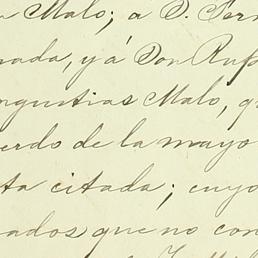 Malo; a D. Fer
nada, y á Don Ruf
ngustias Malo, q
uerdo de la mayo
ta citada; cuyo
ados que no con